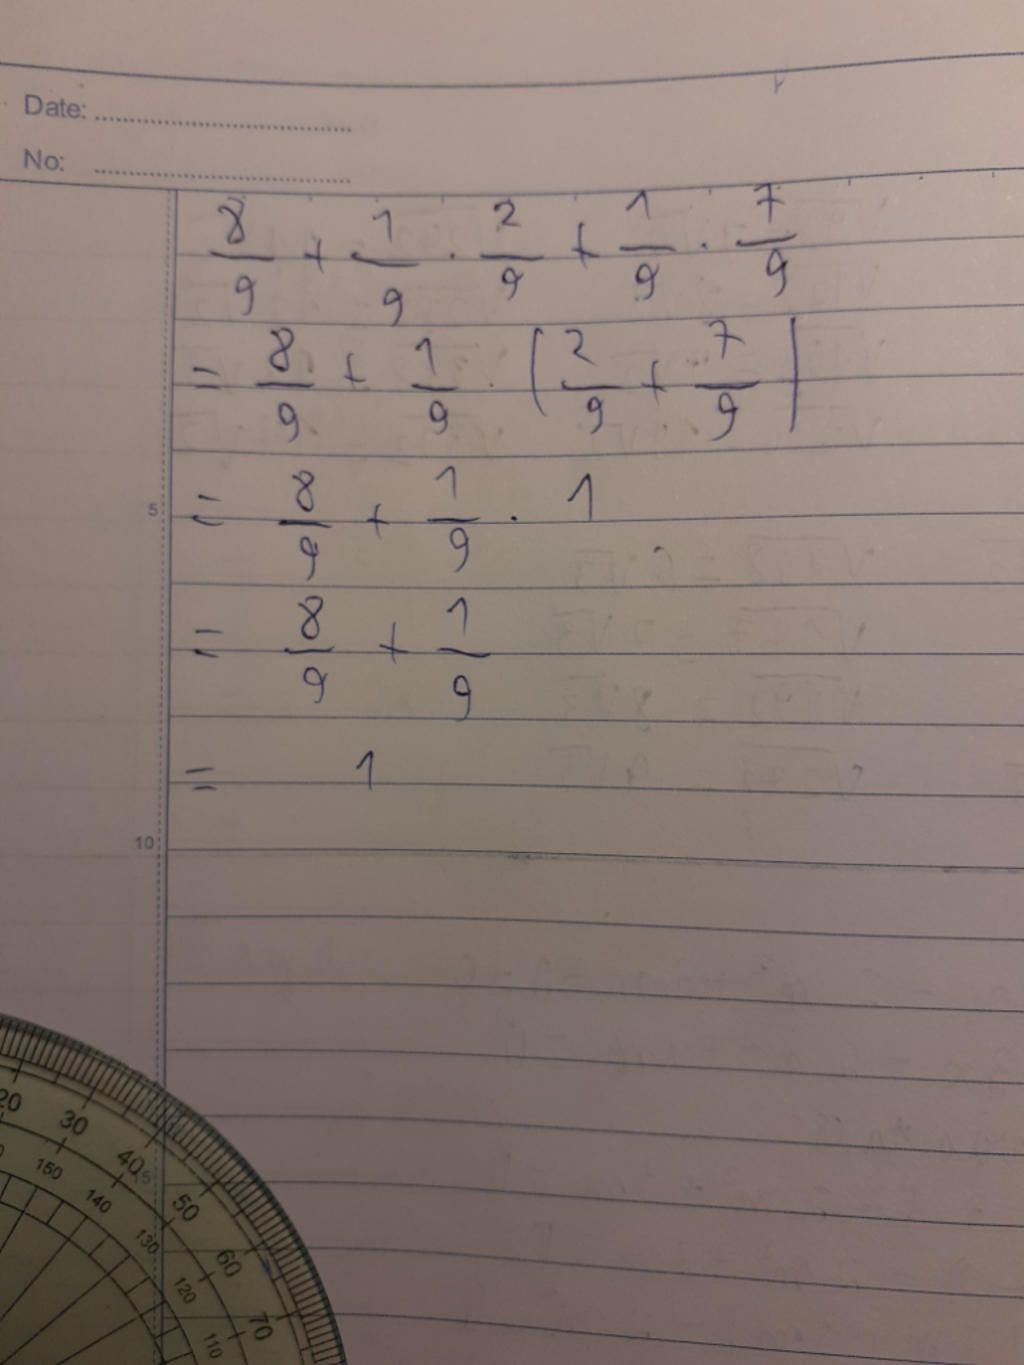 Date:
No:
8/9 + 1/9 · 2/9 + 1/9 · 7/9
= 8/9 + 1/9 · (2/9 + 7/9)
5
= 8/9 + 1/9 · 1
= 8/9 + 1/9
= 1
10
20 30 40 50 60 70
150 140 130 120 110